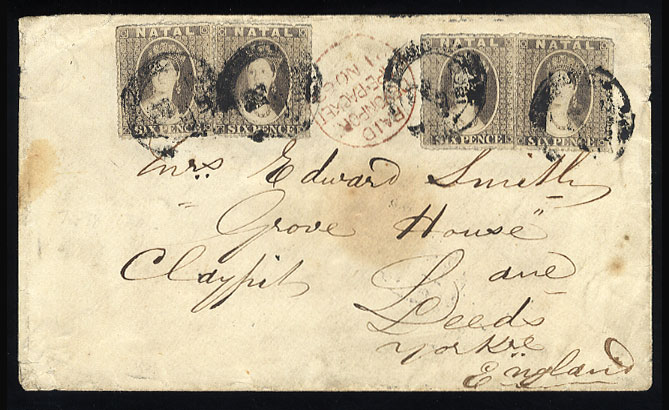 NATAL NATAL NATAL NATAL
SIX PENCE SIX PENCE SIX PENCE SIX PENCE
PAID
1 NO
Mrs Edward Smith
"Grove House"
Claypit Lane
Leeds
Yorkre
England